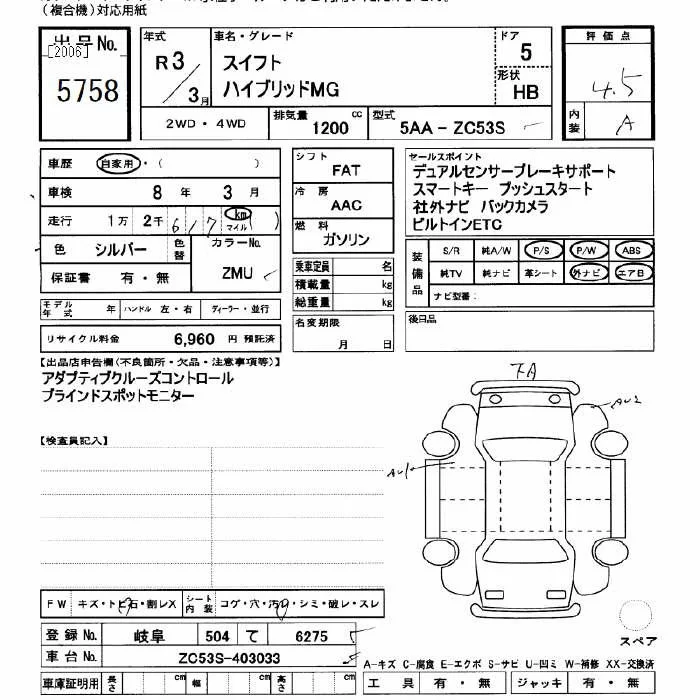 (複合機)対応用紙
出品 No.
[2006]
5758
年式
R3/3月
車名・グレード
スイフト
ハイブリッドMG
ドア
5
形状
HB
評価点
4.5
内装
A
2WD・4WD
排気量
1200 cc
型式
5AA - ZC53S
車歴 自家用・( )
車検 8 年 3 月
走行 1万 2千 617 km マイル
色 シルバー
色替
カラーNo.
ZMU
保証書 有・無
モデル年式 年 ハンドル 左・右 ディーラー・並行
リサイクル料金 6,960 円 預託済
シフト
FAT
冷房
AAC
燃料
ガソリン
乗車定員 名
積載量 kg
総重量 kg
名変期限
月 日
セールスポイント
デュアルセンサーブレーキサポート
スマートキー プッシュスタート
社外ナビ バックカメラ
ビルトインETC
装備品
S/R 純A/W P/S P/W ABS
純TV 純ナビ 革シート 外ナビ エアB
ナビ型番:
後日品
【出品店申告欄(不良箇所・欠品・注意事項等)】
アダプティブクルーズコントロール
ブラインドスポットモニター
【検査員記入】
7A
AU2
AU1
FW キズ・トビ石・割レX
シート内装 コゲ・穴・汚レ・シミ・破レ・スレ
登録 No. 岐阜 504 て 6275
車台 No. ZC53S-403033
車庫証明用 長さ cm 幅 cm 高さ cm
スペア
A-キズ C-腐食 E-エクボ S-サビ U-凹ミ W-補修 XX-交換済
工具 有・無 ジャッキ 有・無